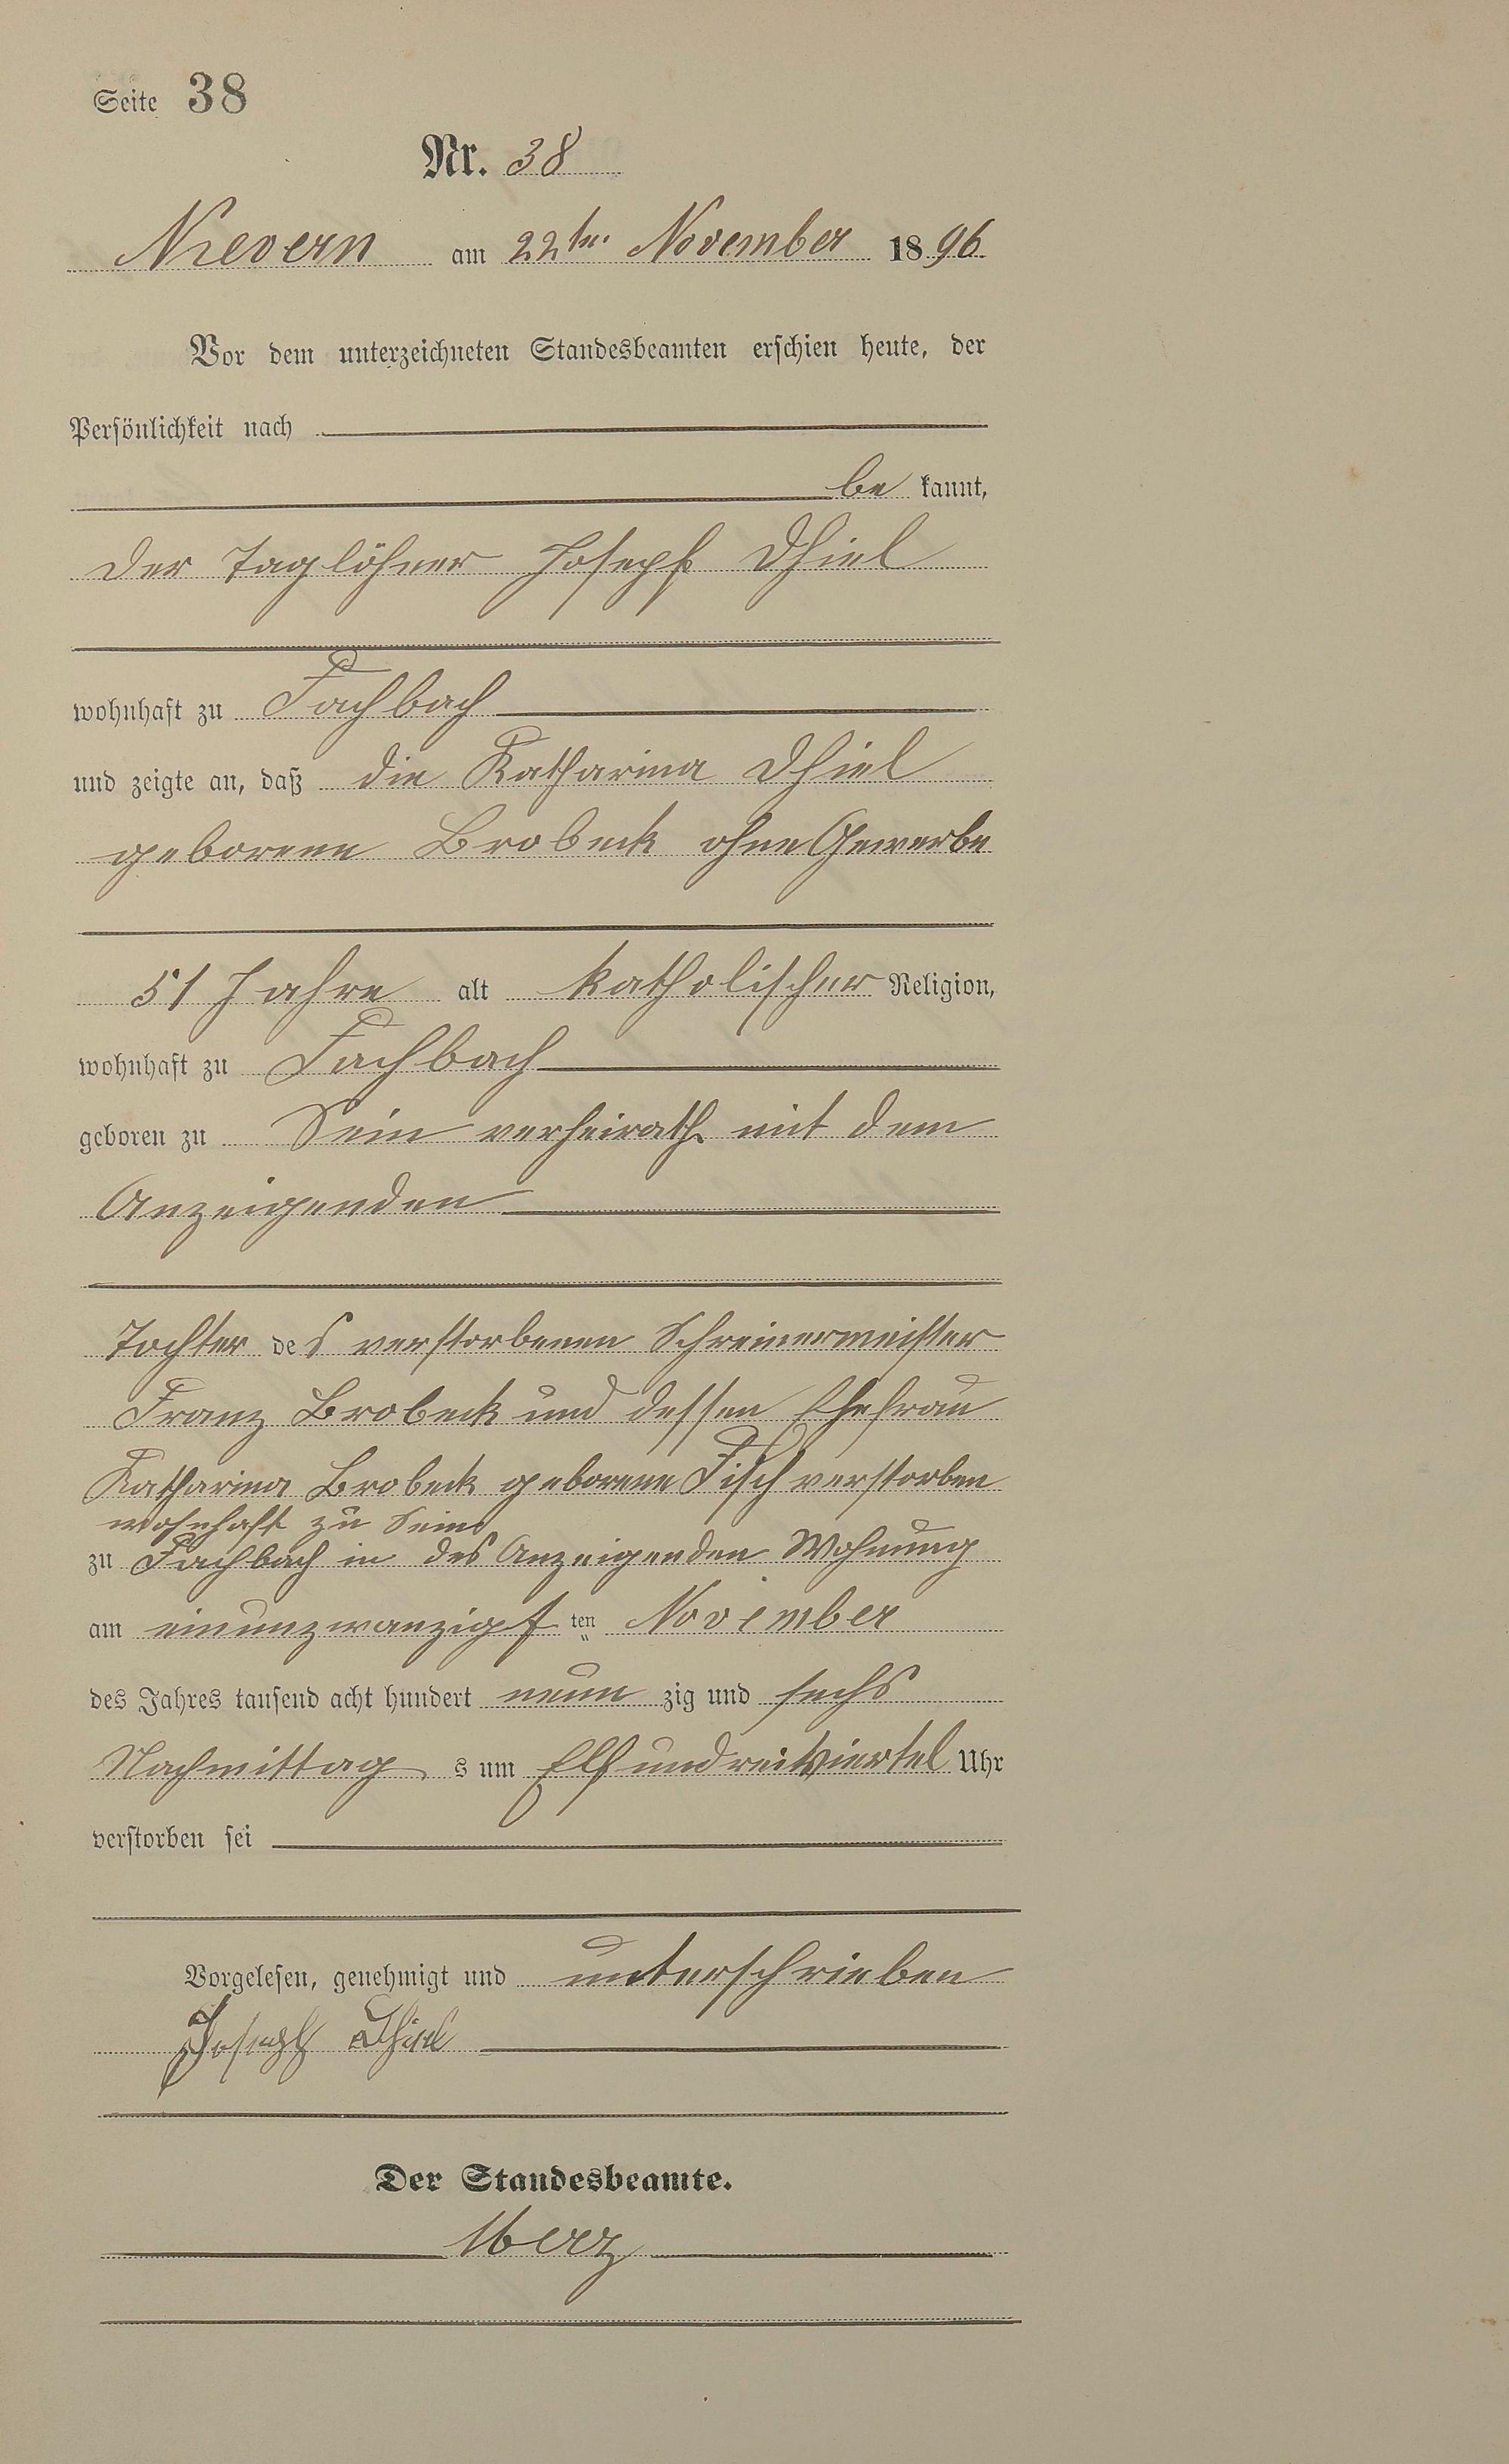 Seite 38
Nr. 38
Nievern am 22ten November 1896.
Vor dem unterzeichneten Standesbeamten erschien heute, der
Persönlichkeit nach
be kannt,
der Taglöhner Joseph Dhiel
wohnhaft zu Fachbach
und zeigte an, daß die Katharina Dhiel
geborene Brobeck ohne Gewerbe
51 Jahre alt katholischer Religion,
wohnhaft zu Fachbach
geboren zu Sein verheirath. mit dem
Anzeigenden
Tochter des verstorbenen Schreinermeister
Franz Brobeck und dessen Ehefrau
Katharina Brobeck geborene Fisch verstorben
wohnhaft zu Sein
zu Fachbach in des Anzeigenden Wohnung
am einunzwanzigsten November
des Jahres tausend acht hundert neun zig und sechs
Nachmittag s um Elf undreiviertel Uhr
verstorben sei
Vorgelesen, genehmigt und unterschrieben
Joseph Dhiel
Der Standesbeamte.
Merz